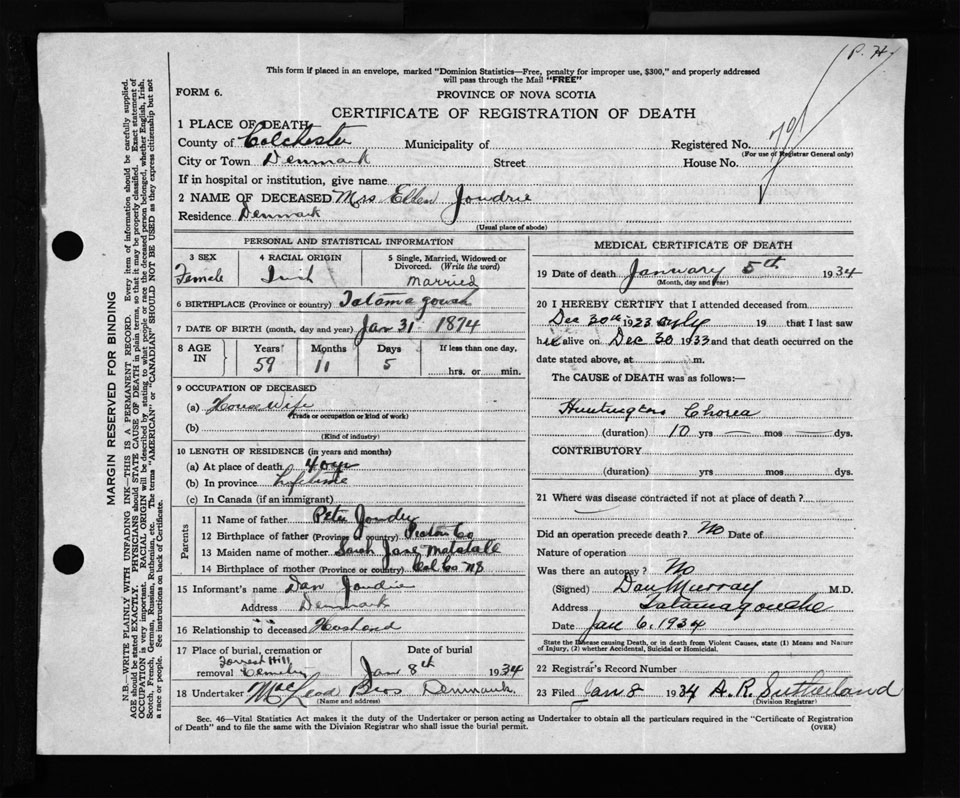 (P.H)
This form if placed in an envelope, marked "Dominion Statistics—Free, penalty for improper use, $300," and properly addressed
will pass through the Mail "FREE"
FORM 6.
PROVINCE OF NOVA SCOTIA
CERTIFICATE OF REGISTRATION OF DEATH
1 PLACE OF DEATH
County of Colchester Municipality of Registered No.
(For use of Registrar General only)
City or Town Denmark Street House No.
If in hospital or institution, give name
2 NAME OF DECEASED Mrs Ellen Joudrie
Residence Denmark
(Usual place of abode)
PERSONAL AND STATISTICAL INFORMATION
3 SEX 4 RACIAL ORIGIN 5 Single, Married, Widowed or
Divorced. (Write the word)
Female Irish Married
6 BIRTHPLACE (Province or country) Tatamagoush
7 DATE OF BIRTH (month, day and year) Jan 31 1874
8 AGE IN Years Months Days If less than one day,
59 11 5 hrs. or min.
9 OCCUPATION OF DECEASED
(a) House Wife
(Trade or occupation or kind of work)
(b)
(Kind of industry)
10 LENGTH OF RESIDENCE (in years and months)
(a) At place of death 40 yr
(b) In province Lifetime
(c) In Canada (if an immigrant)
Parents
11 Name of father Peter Joudry
12 Birthplace of father (Province or country) Pictou Co
13 Maiden name of mother Sarah Jane Matatall
14 Birthplace of mother (Province or country) Col Co NS
15 Informant's name Dan Joudrie
Address Denmark
16 Relationship to deceased Husband
17 Place of burial, cremation or Date of burial
removal Forrest Hill Cemetry Jan 8th 1934
18 Undertaker MacLeod Bros Denmark
(Name and address)
MEDICAL CERTIFICATE OF DEATH
19 Date of death January 5th 1934
(Month, day and year)
20 I HEREBY CERTIFY that I attended deceased from
Dec 30th 1933 only 19 that I last saw
her alive on Dec 30 1933 and that death occurred on the
date stated above, at m.
The CAUSE of DEATH was as follows:—
Huntingtons Chorea
(duration) 10 yrs — mos — dys.
CONTRIBUTORY
(duration) yrs mos dys.
21 Where was disease contracted if not at place of death?
Did an operation precede death? No Date of
Nature of operation
Was there an autopsy? No
(Signed) Dan Murray M.D.
Address Tatamagouche
Date Jan 6, 1934
State the Disease causing Death, or in death from Violent Causes, state (1) Means and Nature
of Injury, (2) whether Accidental, Suicidal or Homicidal.
22 Registrar's Record Number
23 Filed Jan 8 1934 A. R. Sutherland
(Division Registrar)
Sec. 46—Vital Statistics Act makes it the duty of the Undertaker or person acting as Undertaker to obtain all the particulars required in the "Certificate of Registration
of Death" and to file the same with the Division Registrar who shall issue the burial permit.
(OVER)
MARGIN RESERVED FOR BINDING
N.B.—WRITE PLAINLY WITH UNFADING INK—THIS IS A PERMANENT RECORD. Every item of information should be carefully supplied.
AGE should be stated EXACTLY. PHYSICIANS should STATE CAUSE OF DEATH in plain terms, so that it may be properly classified. Exact statement of
OCCUPATION is very important. RACIAL ORIGIN will be described by stating to what people or race the deceased person belonged, whether English, Irish,
Scotch, French, German, Russian, Ruthenian, etc. The terms "AMERICAN" or "CANADIAN" SHOULD NOT BE USED as they express citizenship but not
a race or people. See instructions on back of Certificate.